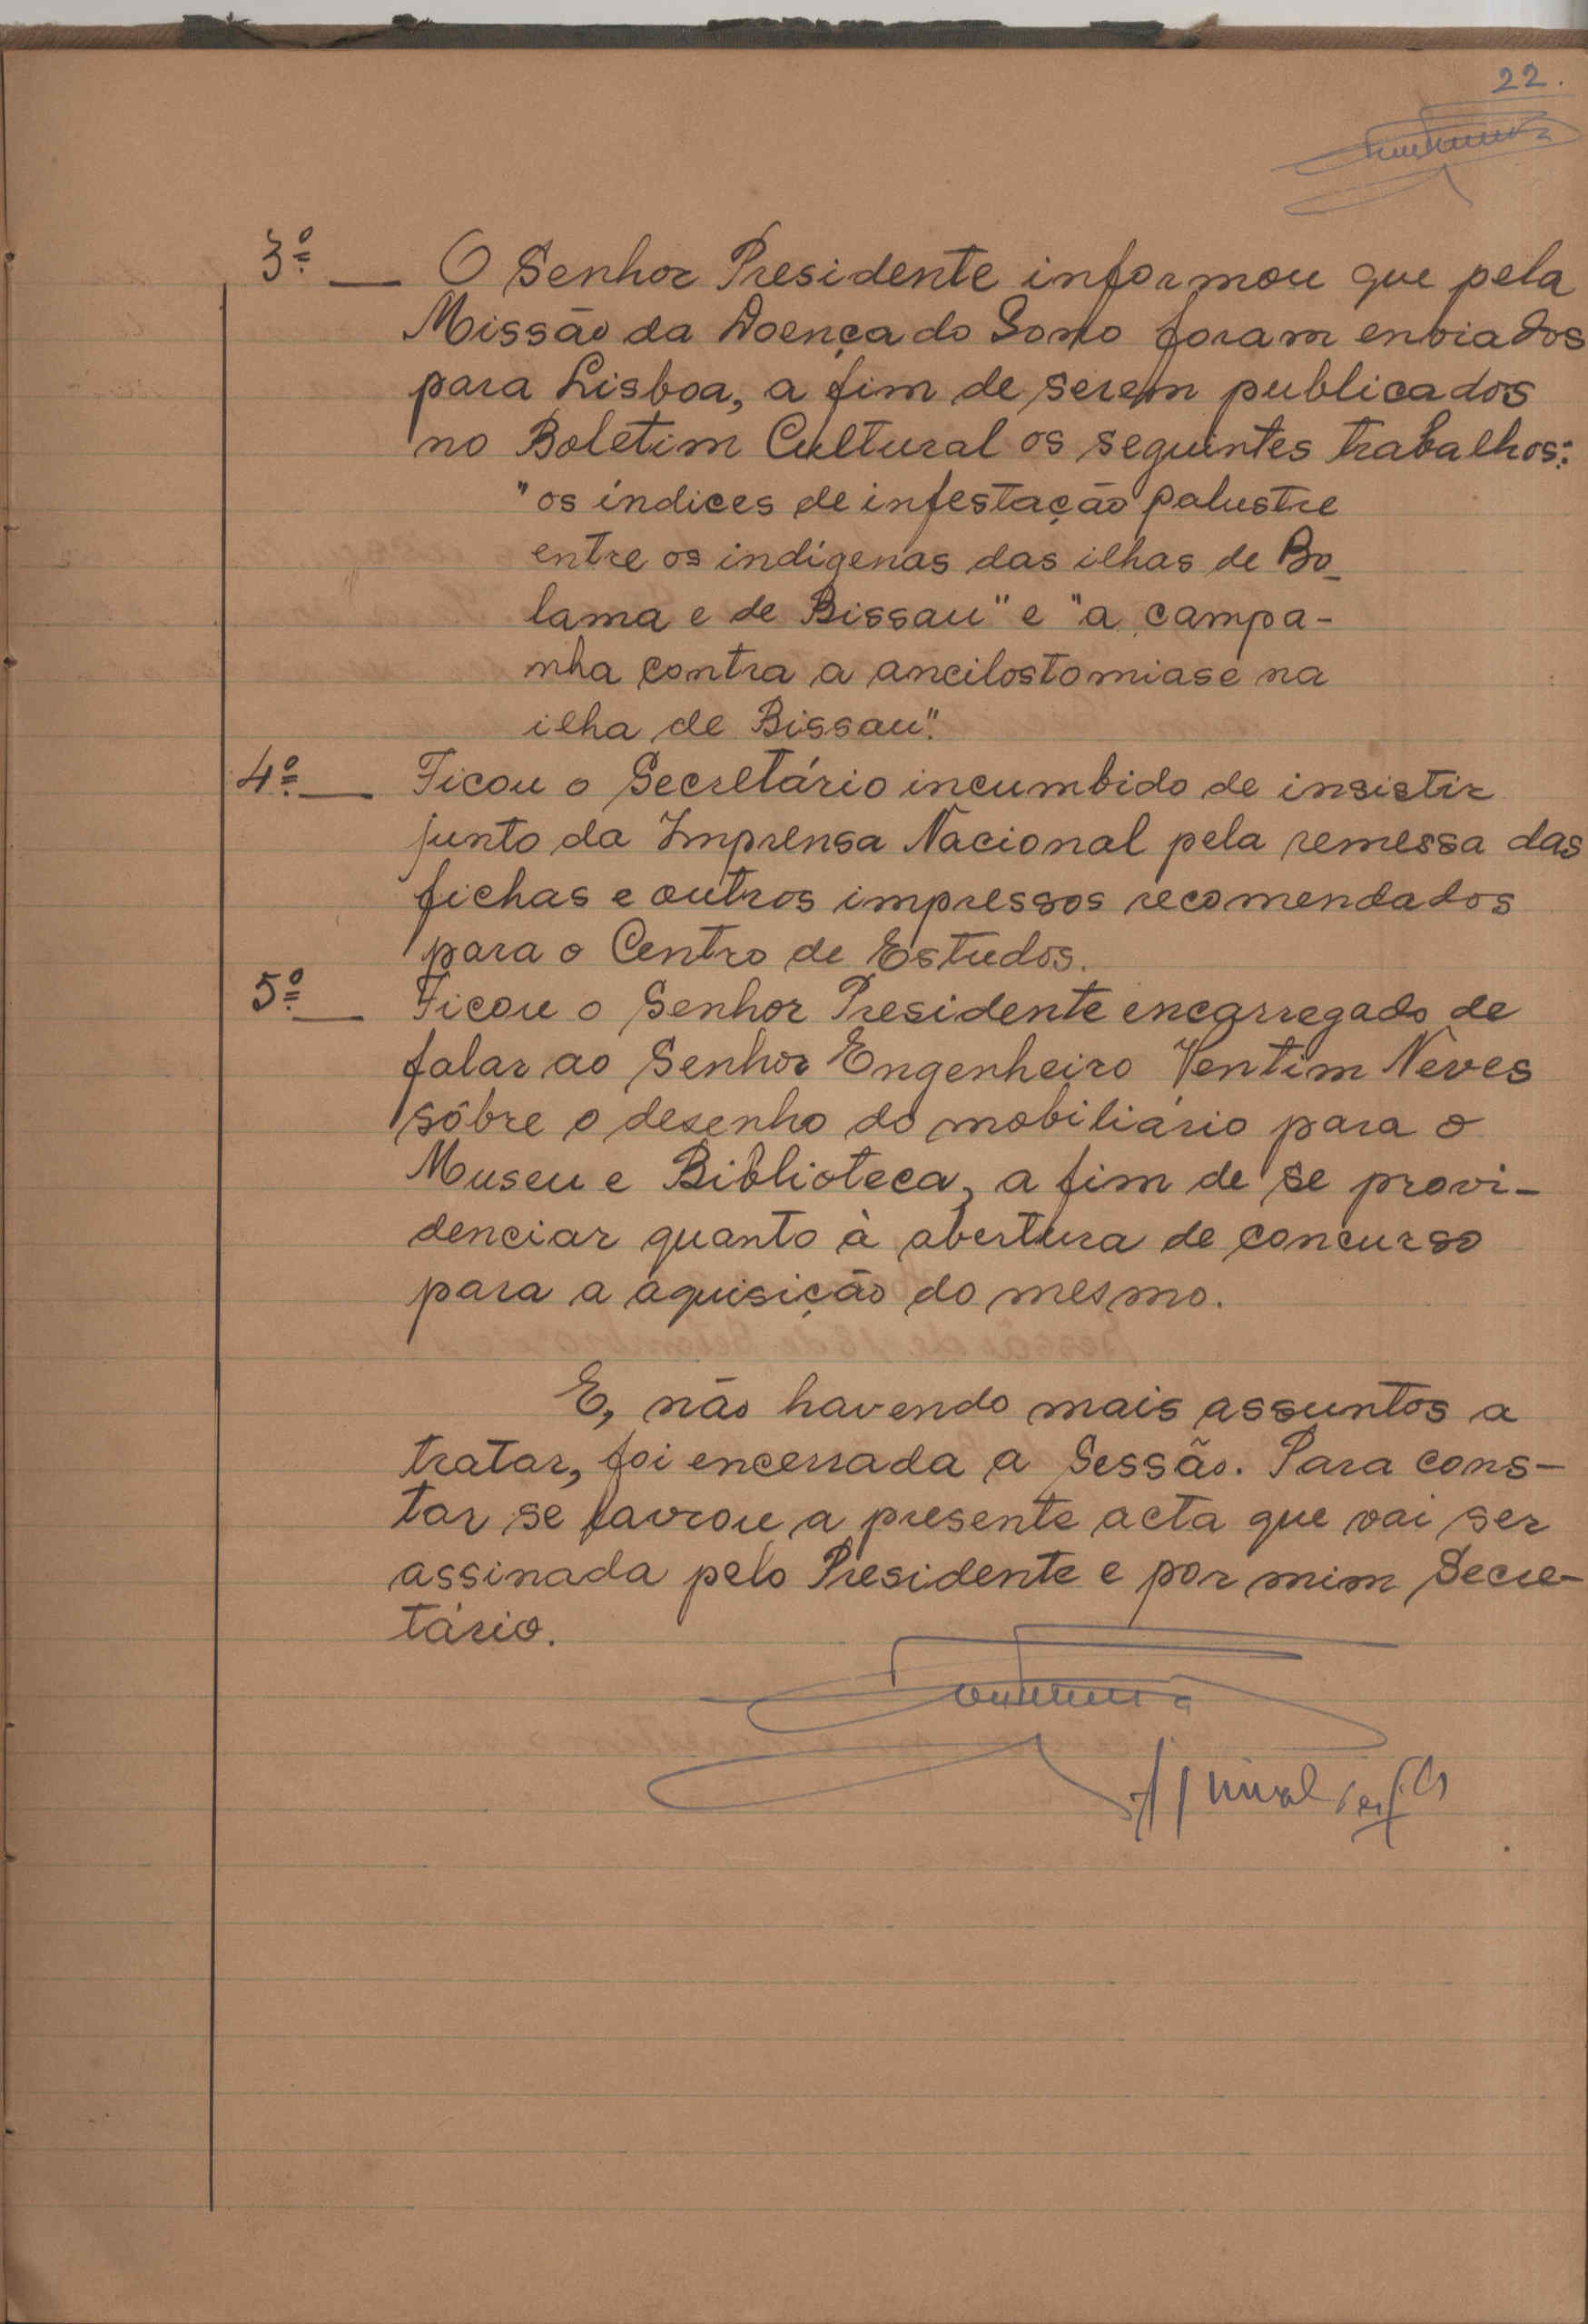 22.
3º — O Senhor Presidente informou que pela
Missão da Doença do Sono foram enviados
para Lisboa, a fim de serem publicados
no Boletim Cultural os seguintes trabalhos:
"os índices de infestação palustre
entre os indígenas das ilhas de Bo-
lama e de Bissau" e "a campa-
nha contra a ancilostomiase na
ilha de Bissau".
4º — Ficou o Secretário incumbido de insistir
junto da Imprensa Nacional pela remessa das
fichas e outros impressos recomendados
para o Centro de Estudos.
5º — Ficou o Senhor Presidente encarregado de
falar ao Senhor Engenheiro Ventim Neves
sôbre o desenho do mobiliário para o
Museu e Biblioteca, a fim de se provi-
denciar quanto à abertura de concurso
para a aquisição do mesmo.
E, não havendo mais assuntos a
tratar, foi encerrada a Sessão. Para cons-
tar se lavrou a presente acta que vai ser
assinada pelo Presidente e por mim Secre-
tário.